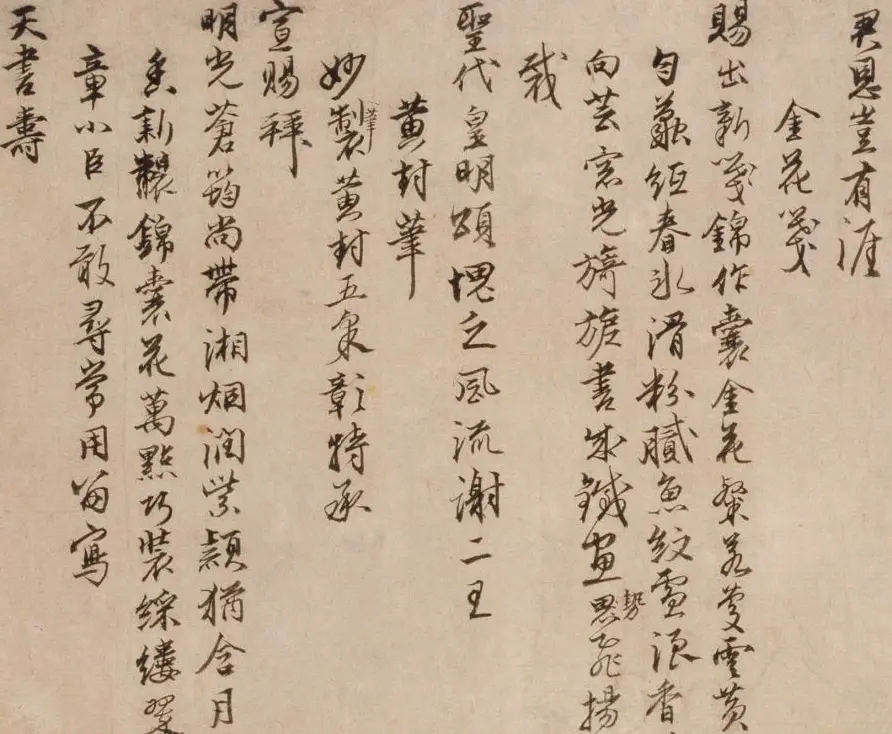 君恩豈有涯
金花箋
賜出新箋錦作囊金花粲若雲黃
勻春氷滑粉膩魚紋雪浪香
向芸窓光旖旎書成鐵畫勢思飛揚
裁
聖代皇明頌愧乏風流謝二王
黃封筆
妙筆製黃封五采彰特承
宣賜拜
明光蒼筠尚帶湘烟潤紫穎猶含月
新製錦囊花萬點巧裝綵縷翠
章小臣不敢尋常用留寫
天書壽